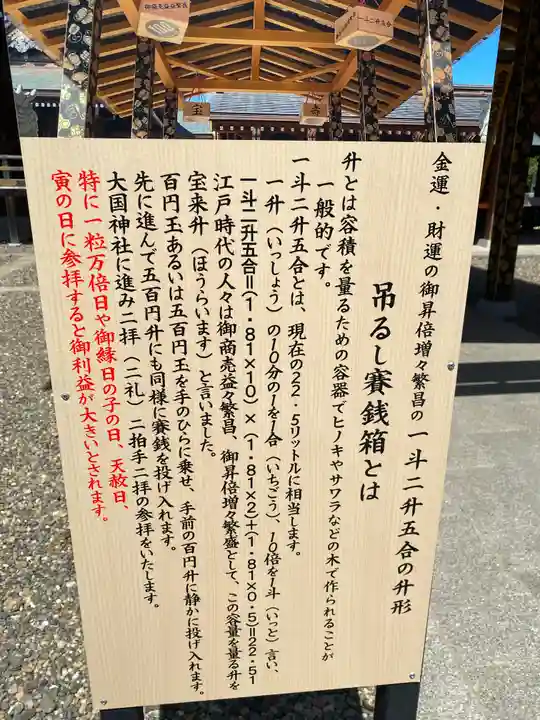 金運・財運の御昇倍増々繁昌の一斗二升五合の升形
吊るし賽銭箱とは
升とは容積を量るための容器でヒノキやサワラなどの木で作られることが
一般的です。
一斗二升五合とは、現在の22・5リットルに相当します。
一升（いっしょう）の10分の1を1合（いちごう）、10倍を1斗（いっと）言い、
一斗二升五合=(1・81×10)×(1・81×2)+(1・81×0・5)=22・51
江戸時代の人々は御商売益々繁昌、御昇倍増々繁盛として、この容量を量る升を
宝来升（ほうらいます）と言いました。
百円玉あるいは五百円玉を手のひらに乗せ、手前の百円升に静かに投げ入れます。
先に進んで五百円升にも同様に賽銭を投げ入れます。
大国神社に進み二拝（二礼）二拍手二拝の参拝をいたします。
特に一粒万倍日や御縁日の子の日、天赦日、
寅の日に参拝すると御利益が大きいとされます。